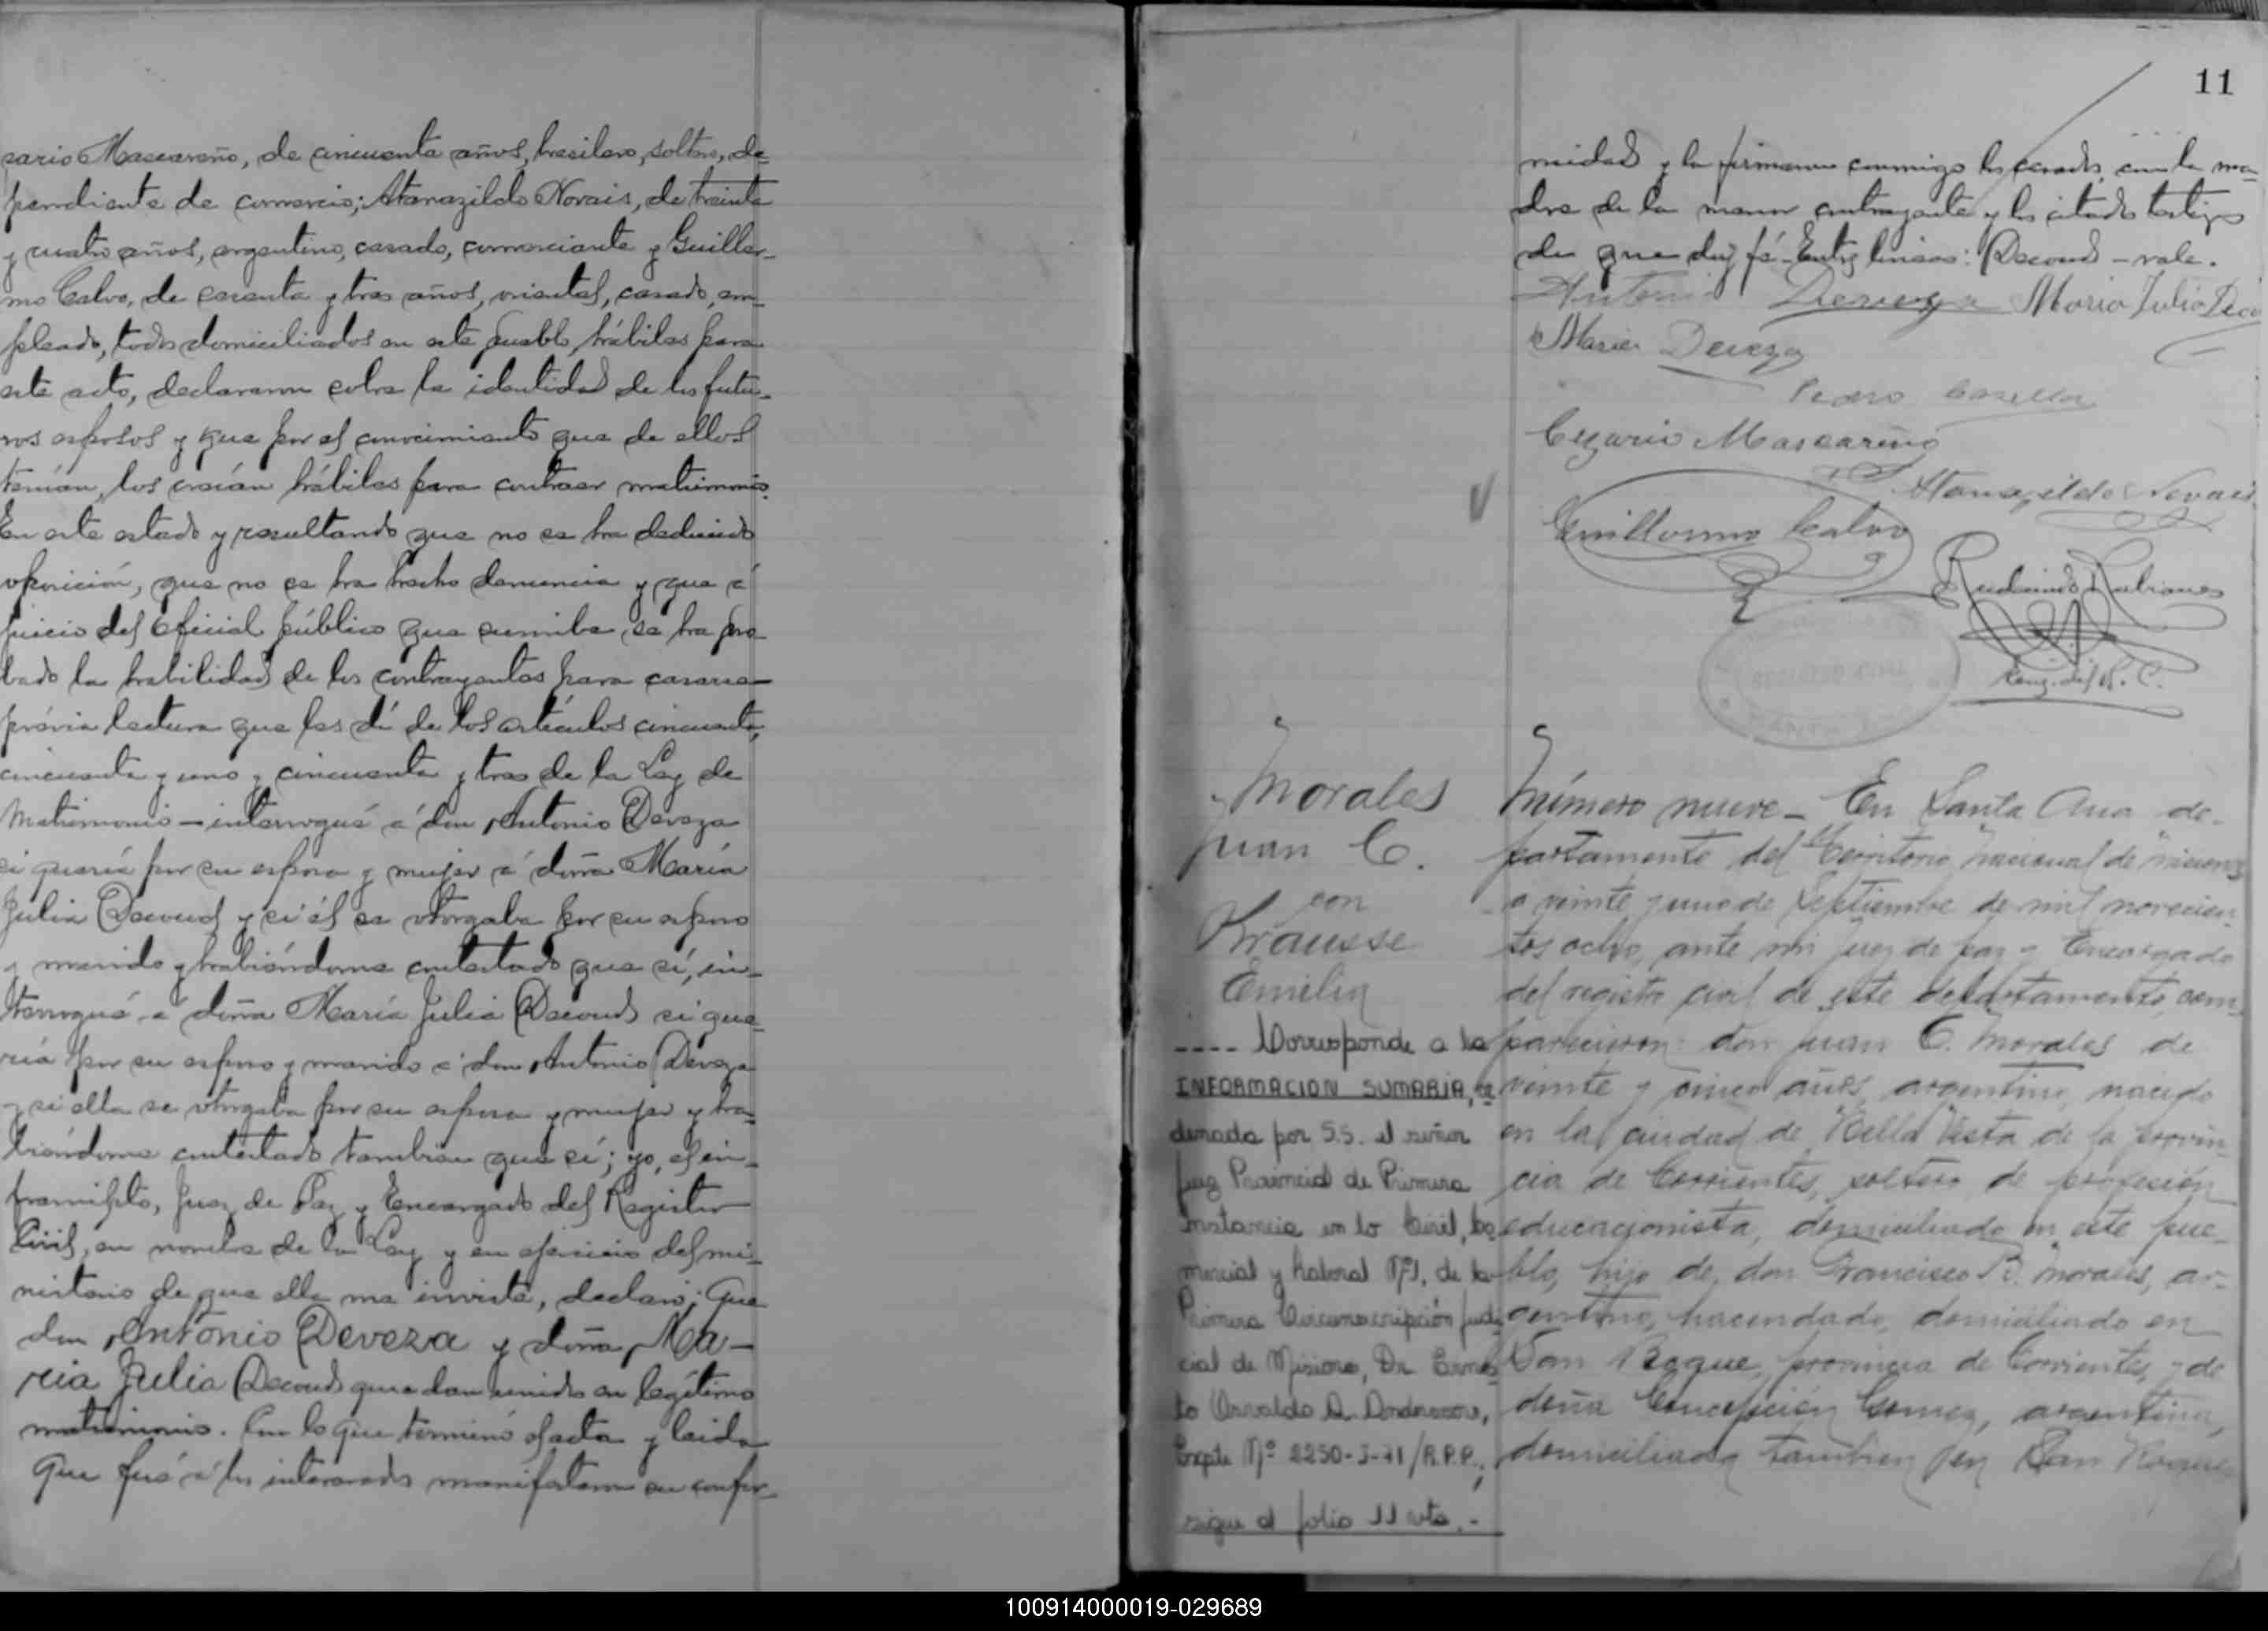 sario Mascareño, de cincuenta años, brasilero, soltero, de-
pendiente de comercio; Atanazildo Novais, de treinta
y cuatro años, argentino, casado, comerciante y Guiller-
mo Calvo, de cuarenta y tres años, oriental, casado, em-
pleado, todos domiciliados en este pueblo, hábiles para
este acto, declararon sobre la identidad de los futu-
ros esposos y que por el conocimiento que de ellos
tenían, los creían hábiles para contraer matrimonio.
En este estado y resultando que no se ha deducido
oposición, que no se ha hecho denuncia y que á
juicio del Oficial público que suscribe, se ha pro-
bado la habilidad de los contrayentes para casarse
prévia lectura que les dí de los artículos cincuenta,
cincuenta y uno y cincuenta y tres de la Ley de
Matrimonio - interrogué á don Antonio Deveza
si quería por su esposa y mujer á doña María
Julia Decoud y si él se otorgaba por su esposo
y marido y habiéndome contestado que sí, in-
terrogué á doña María Julia Decoud si que-
ría por su esposo y marido á don Antonio Deveza
y si ella se otorgaba por su esposa y mujer y ha-
biéndome contestado tambien que sí; yo, el in-
frascripto, Juez de Paz y Encargado del Registro
Civil, en nombre de la Ley y en ejercicio del mi-
nisterio de que ella me inviste, declaro: Que
don Antonio Deveza y doña Ma-
ria Julia Decoud quedan unidos en legítimo
matrimonio. Con lo que terminó el acta y leida
que fué á los interesados manifestaron su confor-
11
midad y la firmaron conmigo los casados, con la ma-
dre de la menor contrayente y los citados testigos
de que doy fé - Entre líneas: Decoud - vale.
Antonio Deveza Maria Julia Deco
Maria Deveza
Pedro Casella
Cezario Mascareño
Atanazildo Novais
Guillermo Calvo
Rudecindo
Enc. del R. C.
REGISTRO CIVIL
Morales
Juan C.
con
Krausse
Emilia
---- Corresponde a la
INFORMACION SUMARIA, or
denada por S.S. el señor
Juez Provincial de Primera
Instancia en lo Civil, Co
mercial y Laboral Nº1, de la
Primera Circunscripción Judi
cial de Misiones, Dr. Ernes
to Osvaldo A.
Expte Nº 2250-J-71/R.P.P.;
sigue al folio 11 vta.-
Número nueve - En Santa Ana de-
partamento del Territorio nacional de Misiones
a veinte y uno de Septiembre de mil novecien-
tos ocho, ante mi juez de paz y Encargado
del registro civil de este departamento, com-
parecieron: don Juan C. Morales de
veinte y cinco años, argentino, nacido
en la ciudad de Bella Vista de la provin-
cia de Corrientes, soltero de profesión
educacionista, domiciliado en este pue-
blo, hijo de don Francisco R. Morales, ar-
gentino, hacendado, domiciliado en
San Roque, provincia de Corrientes, y de
doña Concepción Gomez, argentina,
domiciliada tambien en San Roque
100914000019-029689